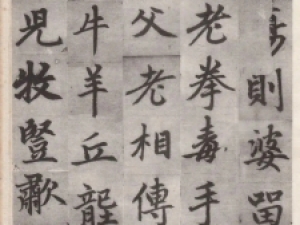 則婆留
老拳毒手
父老相傳
牛羊丘壟
兒牧豎